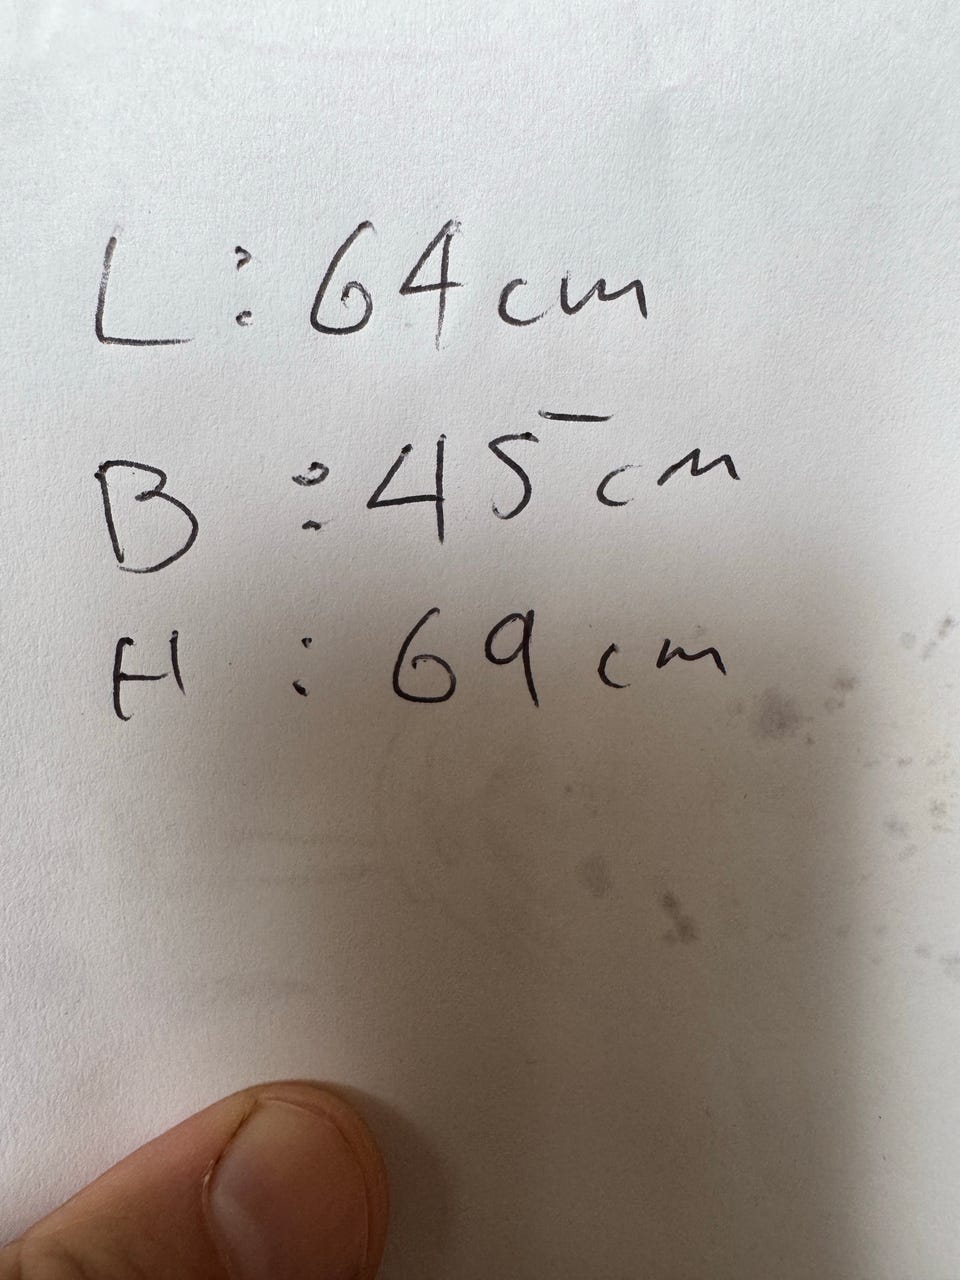 L: 64 cm
B: 45 cm
H: 69 cm